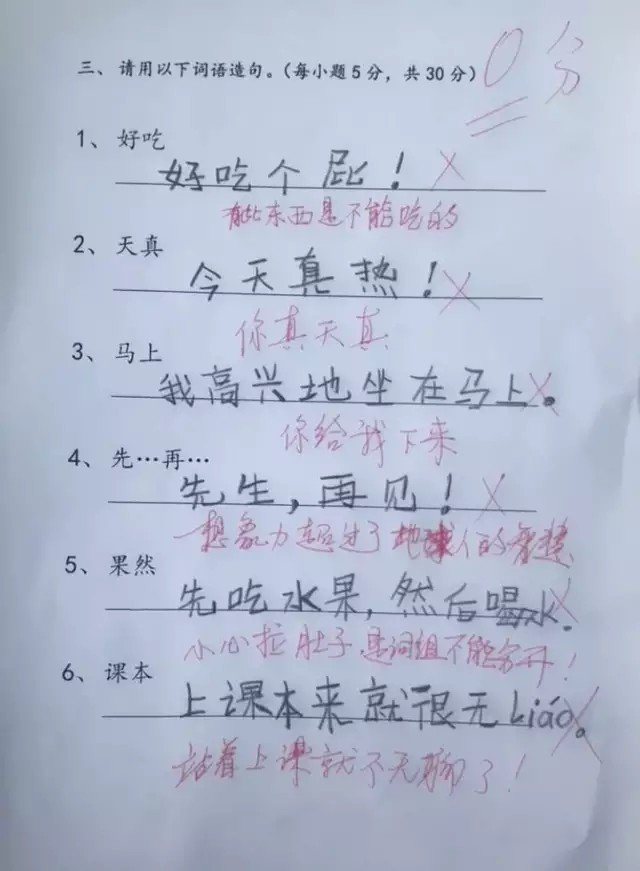 三、请用以下词语造句。（每小题5分，共30分）
0分
1、好吃
好吃个屁！
有些东西是不能吃的
2、天真
今天真热！
你真天真
3、马上
我高兴地坐在马上。
你给我下来
4、先…再…
先生，再见！
想象力超过了地球人的智慧
5、果然
先吃水果，然后喝水。
小心拉肚子 是词组不能分开！
6、课本
上课本来就很无liáo。
站着上课就不无聊了！